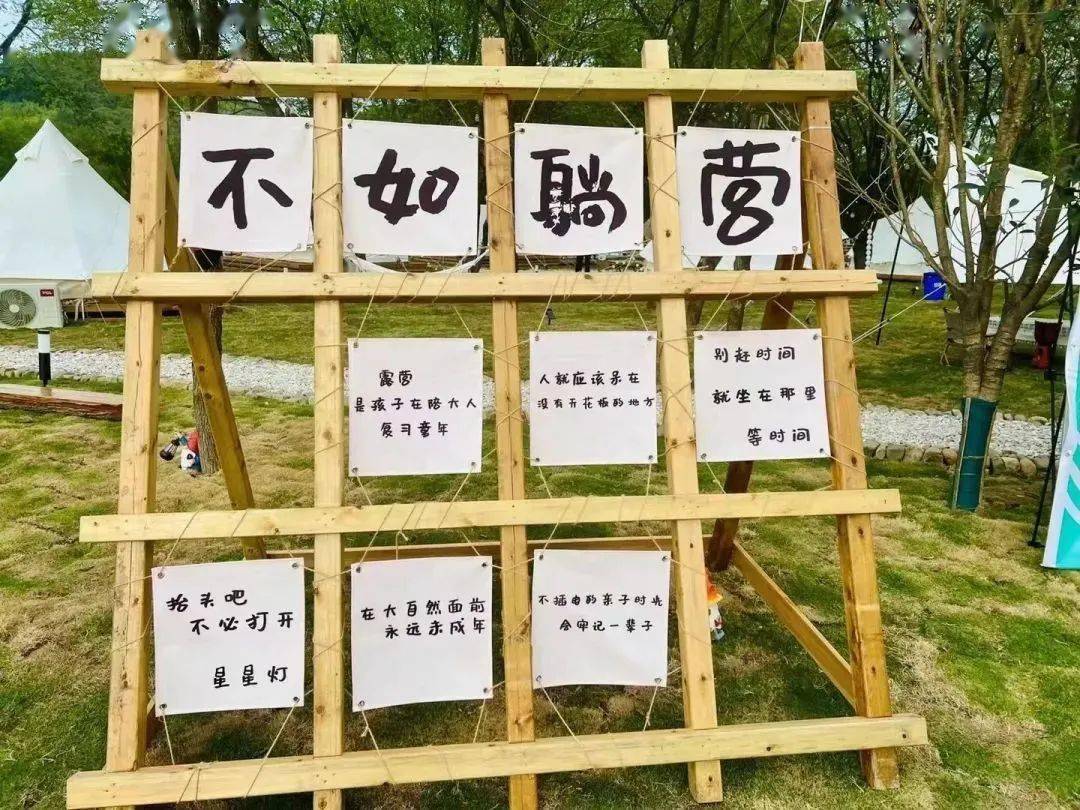 不如躺营
露营
是孩子在陪大人
复习童年
人就应该呆在
没有天花板的地方
别赶时间
就坐在那里
等时间
抬头吧
不必打开
星星灯
在大自然面前
永远未成年
不插电的亲子时光
会牢记一辈子
TCL